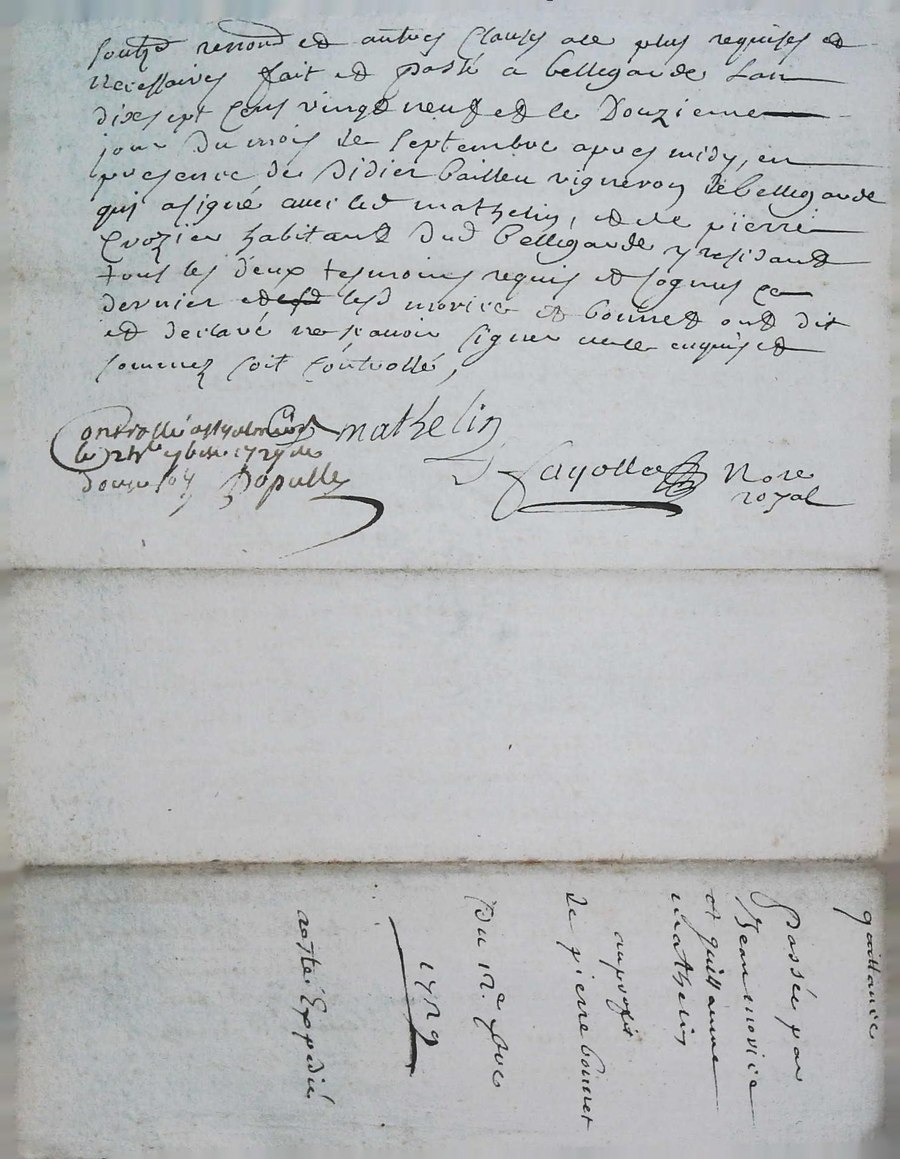 renond et autres clauses ale plus requises et
necessaires fait et passé a bellegarde Lan
dixsept cens vingt neuf et le Douzieme
jour du mois de Septembre apres midy, en
presence de Didier bailleu vigneron de bellegarde
qui a signé avec led mathelin, et de pierre
Crozier habitant dud bellegarde y residant
tous les deux tesmoins requis et sognus ce
dernier et lesd moricé et bonnet ont dit
et declaré ne scavoir signer de ce enquis et
sommez soit controllé,
Controllé a
le 12 7bre 1729
douze sol
mathelin
fayolle Nore
royal
quittance
Passée par
Jean moricé
et guillaume
mathelin
au profit
de pierre bonnet
Du 12e 7bre
1729
notte Expedié